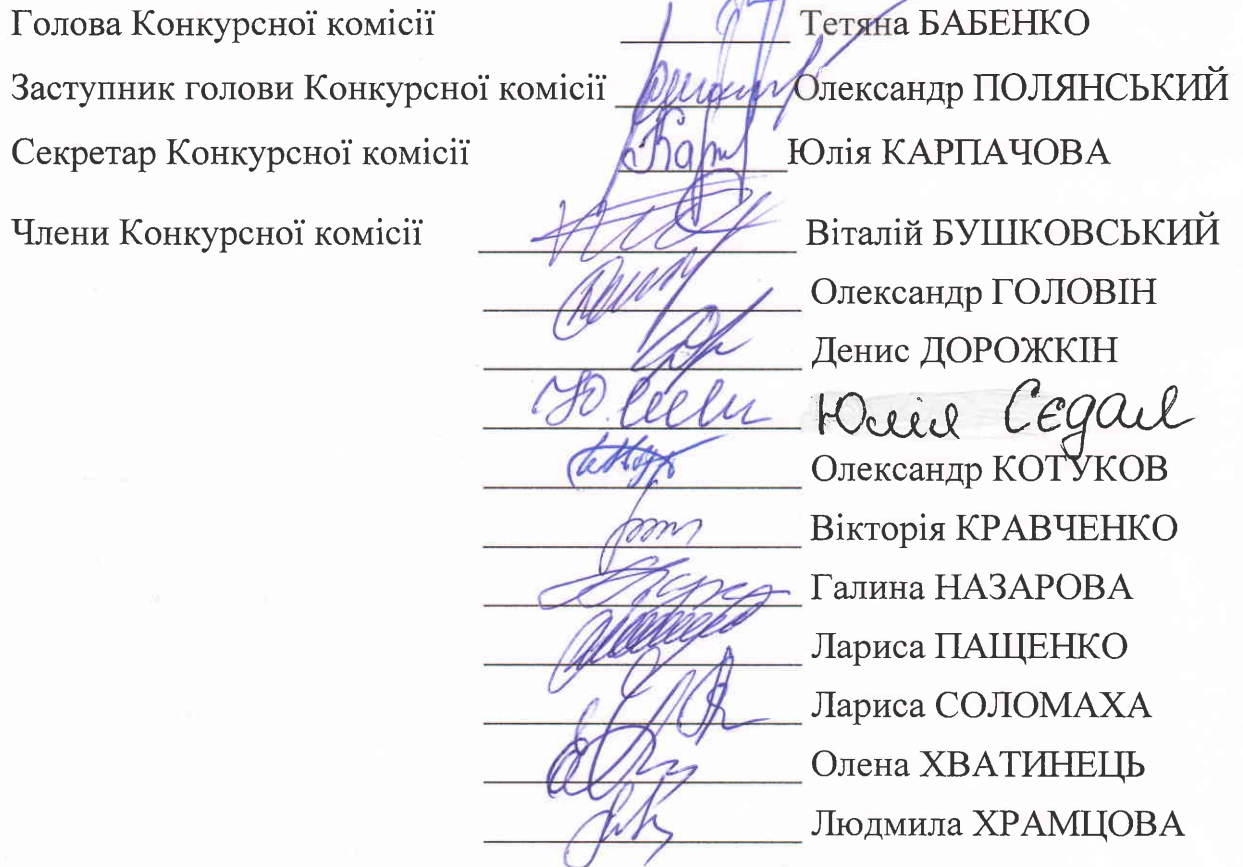 Голова Конкурсної комісії Тетяна БАБЕНКО
Заступник голови Конкурсної комісії Олександр ПОЛЯНСЬКИЙ
Секретар Конкурсної комісії Юлія КАРПАЧОВА
Члени Конкурсної комісії Віталій БУШКОВСЬКИЙ
Олександр ГОЛОВІН
Денис ДОРОЖКІН
Юлія Сєдал
Олександр КОТУКОВ
Вікторія КРАВЧЕНКО
Галина НАЗАРОВА
Лариса ПАЩЕНКО
Лариса СОЛОМАХА
Олена ХВАТИНЕЦЬ
Людмила ХРАМЦОВА